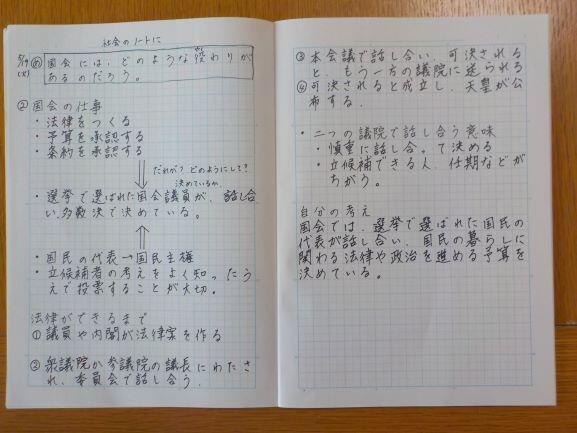 社会のノートに
5/19
(火)
め 国会には、どのような役わりが
あるのだろう。
② 国会の仕事
・法律をつくる
・予算を承認する
・条約を承認する
だれが? どのようにして?
決めているか、
・選挙で選ばれた国会議員が、話し合
い、多数決で決めている。
・国民の代表→国民主権
・立候補者の考えをよく知ったう
えで投票することが大切。
法律ができるまで
① 議員や内閣が法律案を作る
② 衆議院か参議院の議長にわたさ
れ、委員会で話し合う。
③ 本会議で話し合い、可決される
と、もう一方の議院に送られる
④ 可決されると成立し、天皇が公
布する。
・二つの議院で話し合う意味
・慎重に話し合って決める
・立候補できる人、任期などが
ちがう。
自分の考え
国会では、選挙で選ばれた国民の
代表が話し合い、国民の暮らしに
関わる法律や政治を進める予算を
決めている。